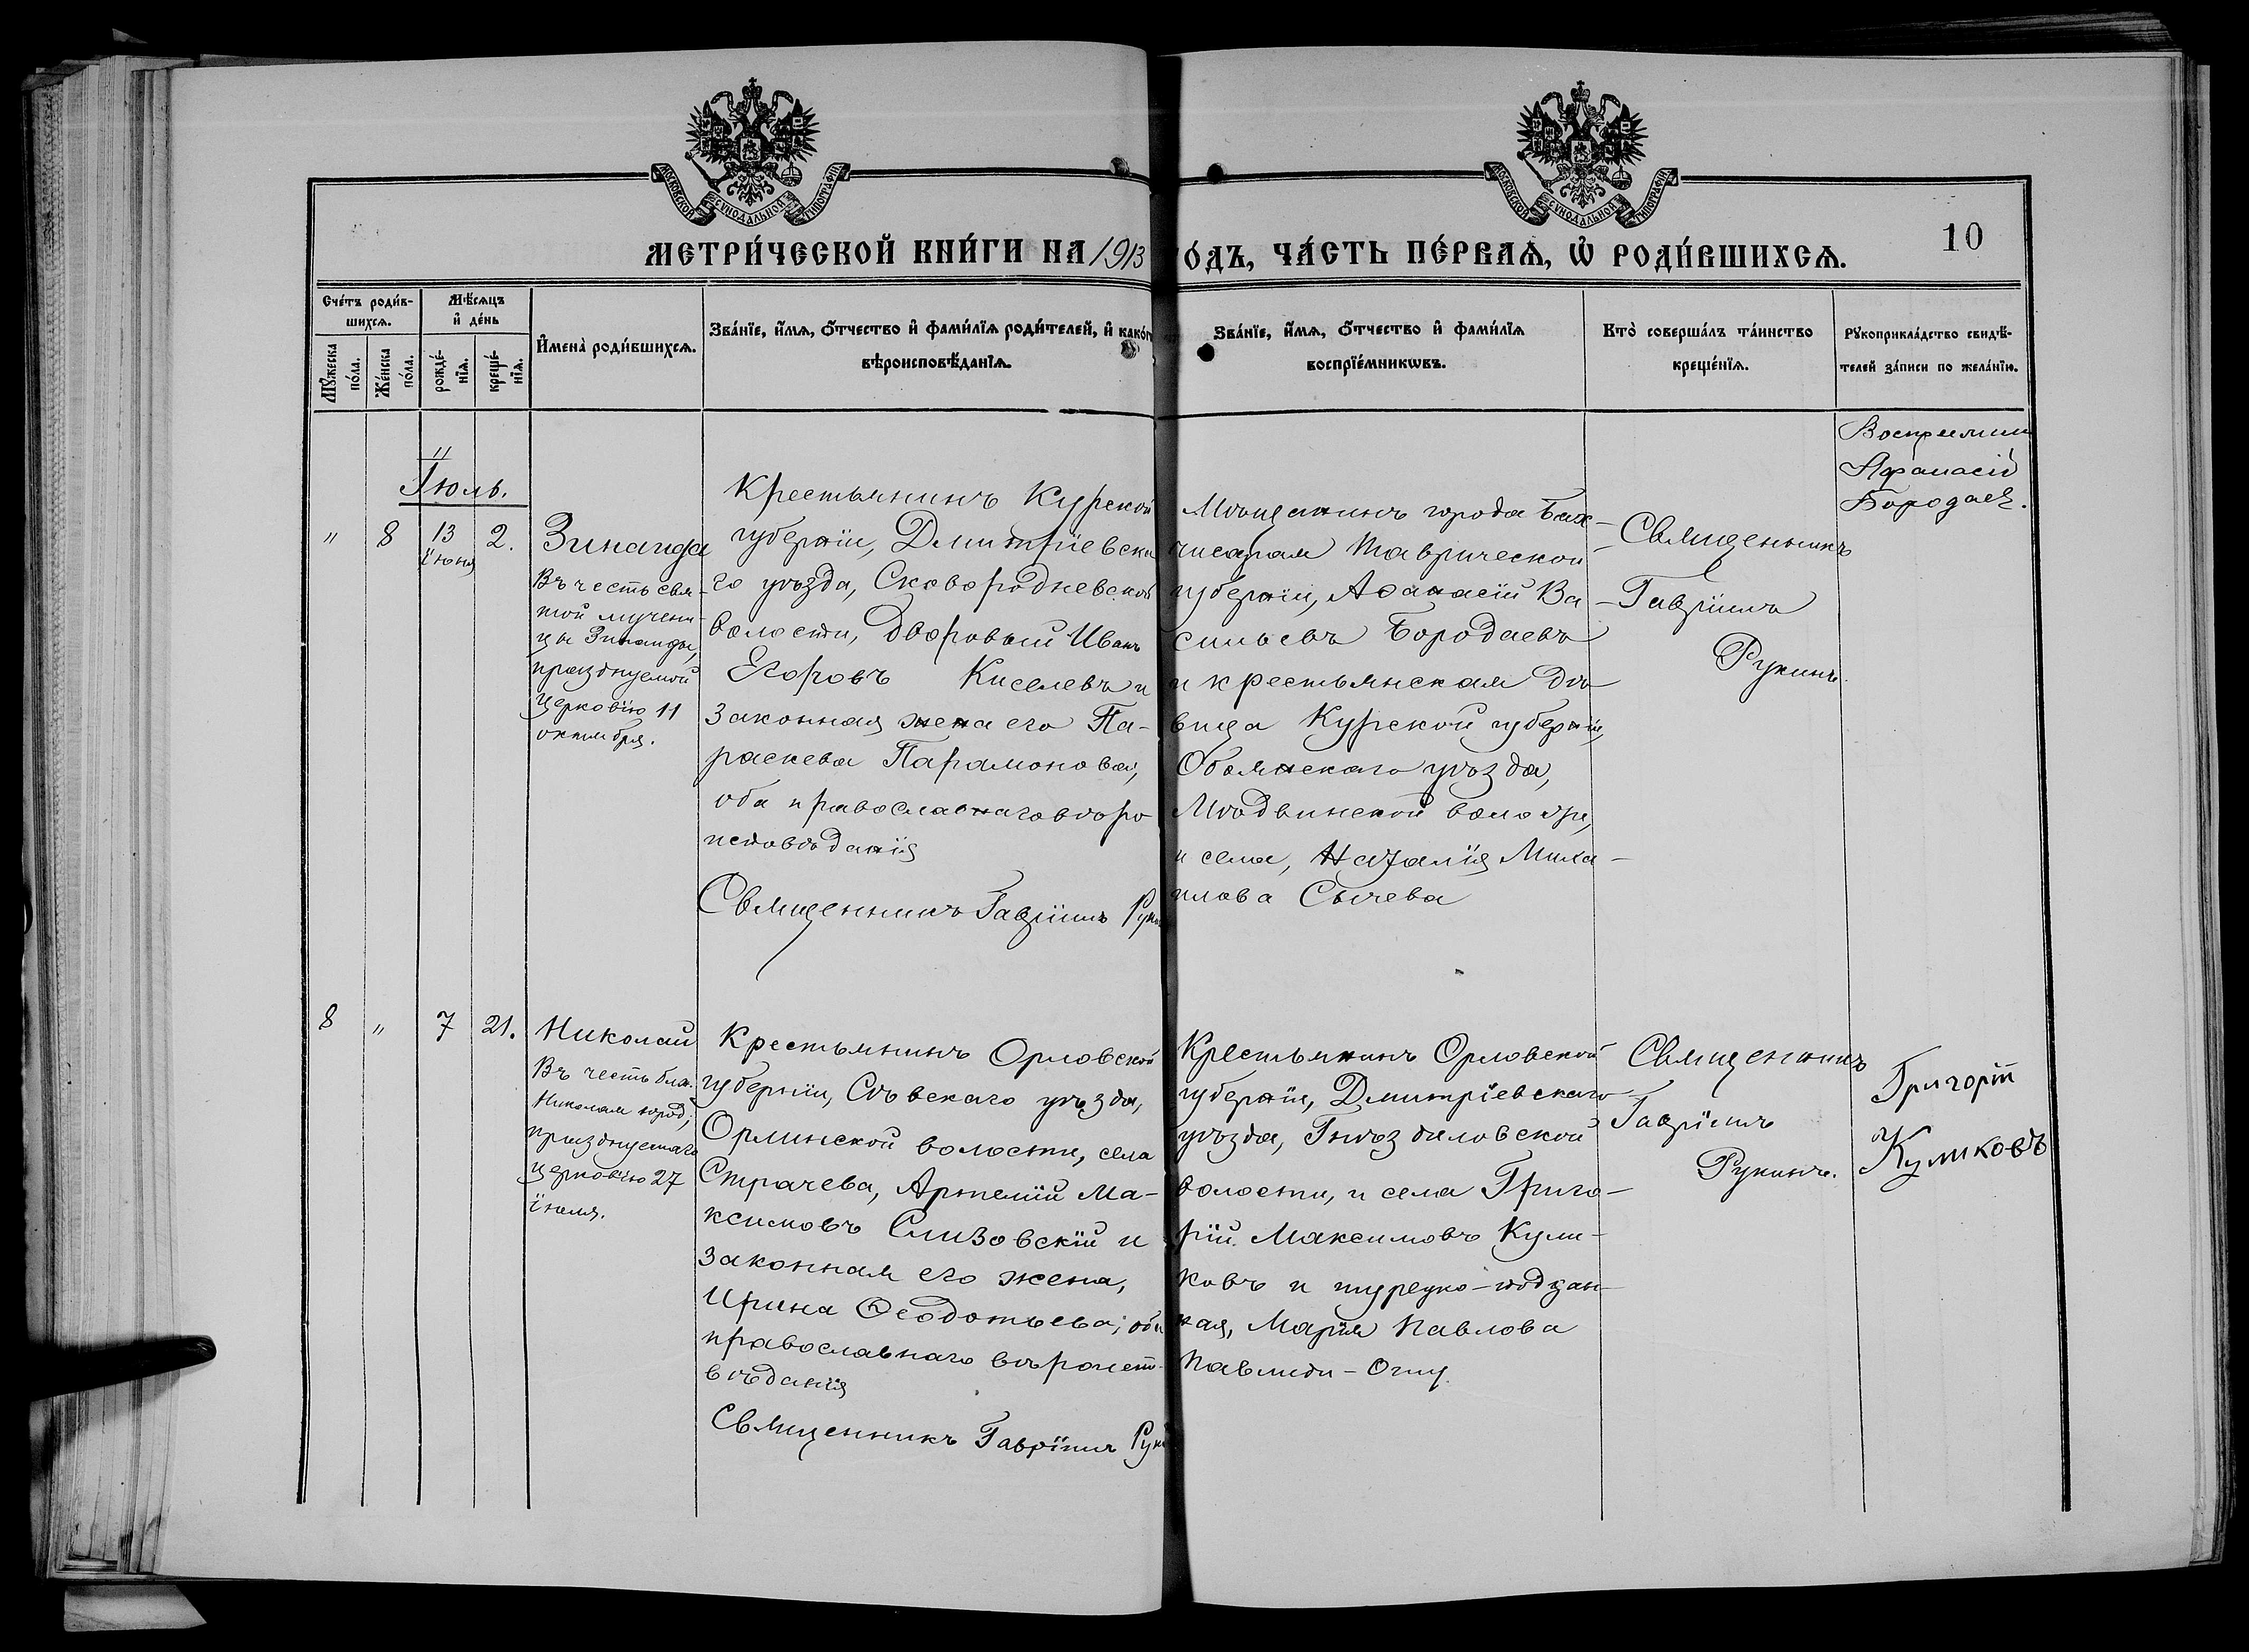 МОСКОВСКОЙ СѴНОДАЛЬНОЙ ТИПОГРАФІИ
МОСКОВСКОЙ СѴНОДАЛЬНОЙ ТИПОГРАФІИ
МЕТРИ́ЧЕСКОЙ КНИ́ГИ НА 1913 ГО́ДЪ, ЧА́СТЬ ПЕ́РВАѦ, Ѡ҆ РОДИ́ВШИХСѦ.
10
Сче́тъ роди́в-
шихсѧ.
Мꙋ́жеска
по́ла.
Же́нска
по́ла.
Мѣ́сѧцъ
и҆ де́нь
рожде́-
нїѧ.
креще́-
нїѧ.
И҆мена̀ роди́вшихсѧ.
Зва́нїе, и҆́мѧ, ѻ҆́тчество и҆ фами́лїѧ роди́телей, и҆ како́г
вѣроисповѣ́данїѧ.
Зва́нїе, и҆́мѧ, ѻ҆́тчество и҆ фами́лїѧ
воспрїе́мникѡвъ.
Кто̀ соверша́лъ та́инство
креще́нїѧ.
Рꙋкоприкла́дство свидѣ́-
телей за́писи по жела́нїю.
"
Іюль.
" 8 13 2.
іюня
Зинаида
Въ честь свя-
той мучени-
цы Зинаиды,
празднуемой
церковію 11
октября.
Крестьянинъ Курской
губерніи, Дмитріевска
го уѣзда, Сковородневской
волости, дворовый Иванъ
Егоровъ Киселевъ и
законная жена его Па-
раскева Парамонова,
оба православнаго вѣро
исповѣданія
Священникъ Гавріилъ Руки
Мѣщанинъ города Бах-
чисарая Таврической
губерніи, Аѳанасій Ва-
сильевъ Бородаевъ
и крестьянская дѣ-
вица Курской губерніи,
Обоянскаго уѣзда,
волости,
и села, Наталія Миха-
илова Сычева
Священникъ
Гавріилъ
Рукинъ.
Афанасій
Бородаев.
8 " 7 21.
Николай
Въ честь бла.
Николая юрод;
празднуемаго
церковію 27
іюля.
Крестьянинъ Орловской
губерніи, Сѣвскаго уѣзда,
Орлинской волости, села
Страчева, Артемій Ма-
ксимовъ Слизовскій и
законная его жена,
Ирина Ѳеодотьева; оба
православнаго вѣроисп-
вѣданія
Священникъ Гавріилъ Руки
Крестьянинъ Орловской
губерніи, Дмитріевскаго
уѣзда, Гнѣздиловской
волости, и села Григо-
рій Максимовъ Кули-
ковъ и турецко-поддан-
ная, Марія Павлова
Павлиди-Оглу.
Священникъ
Гавріилъ
Рукинъ.
Григорій
Куликовъ